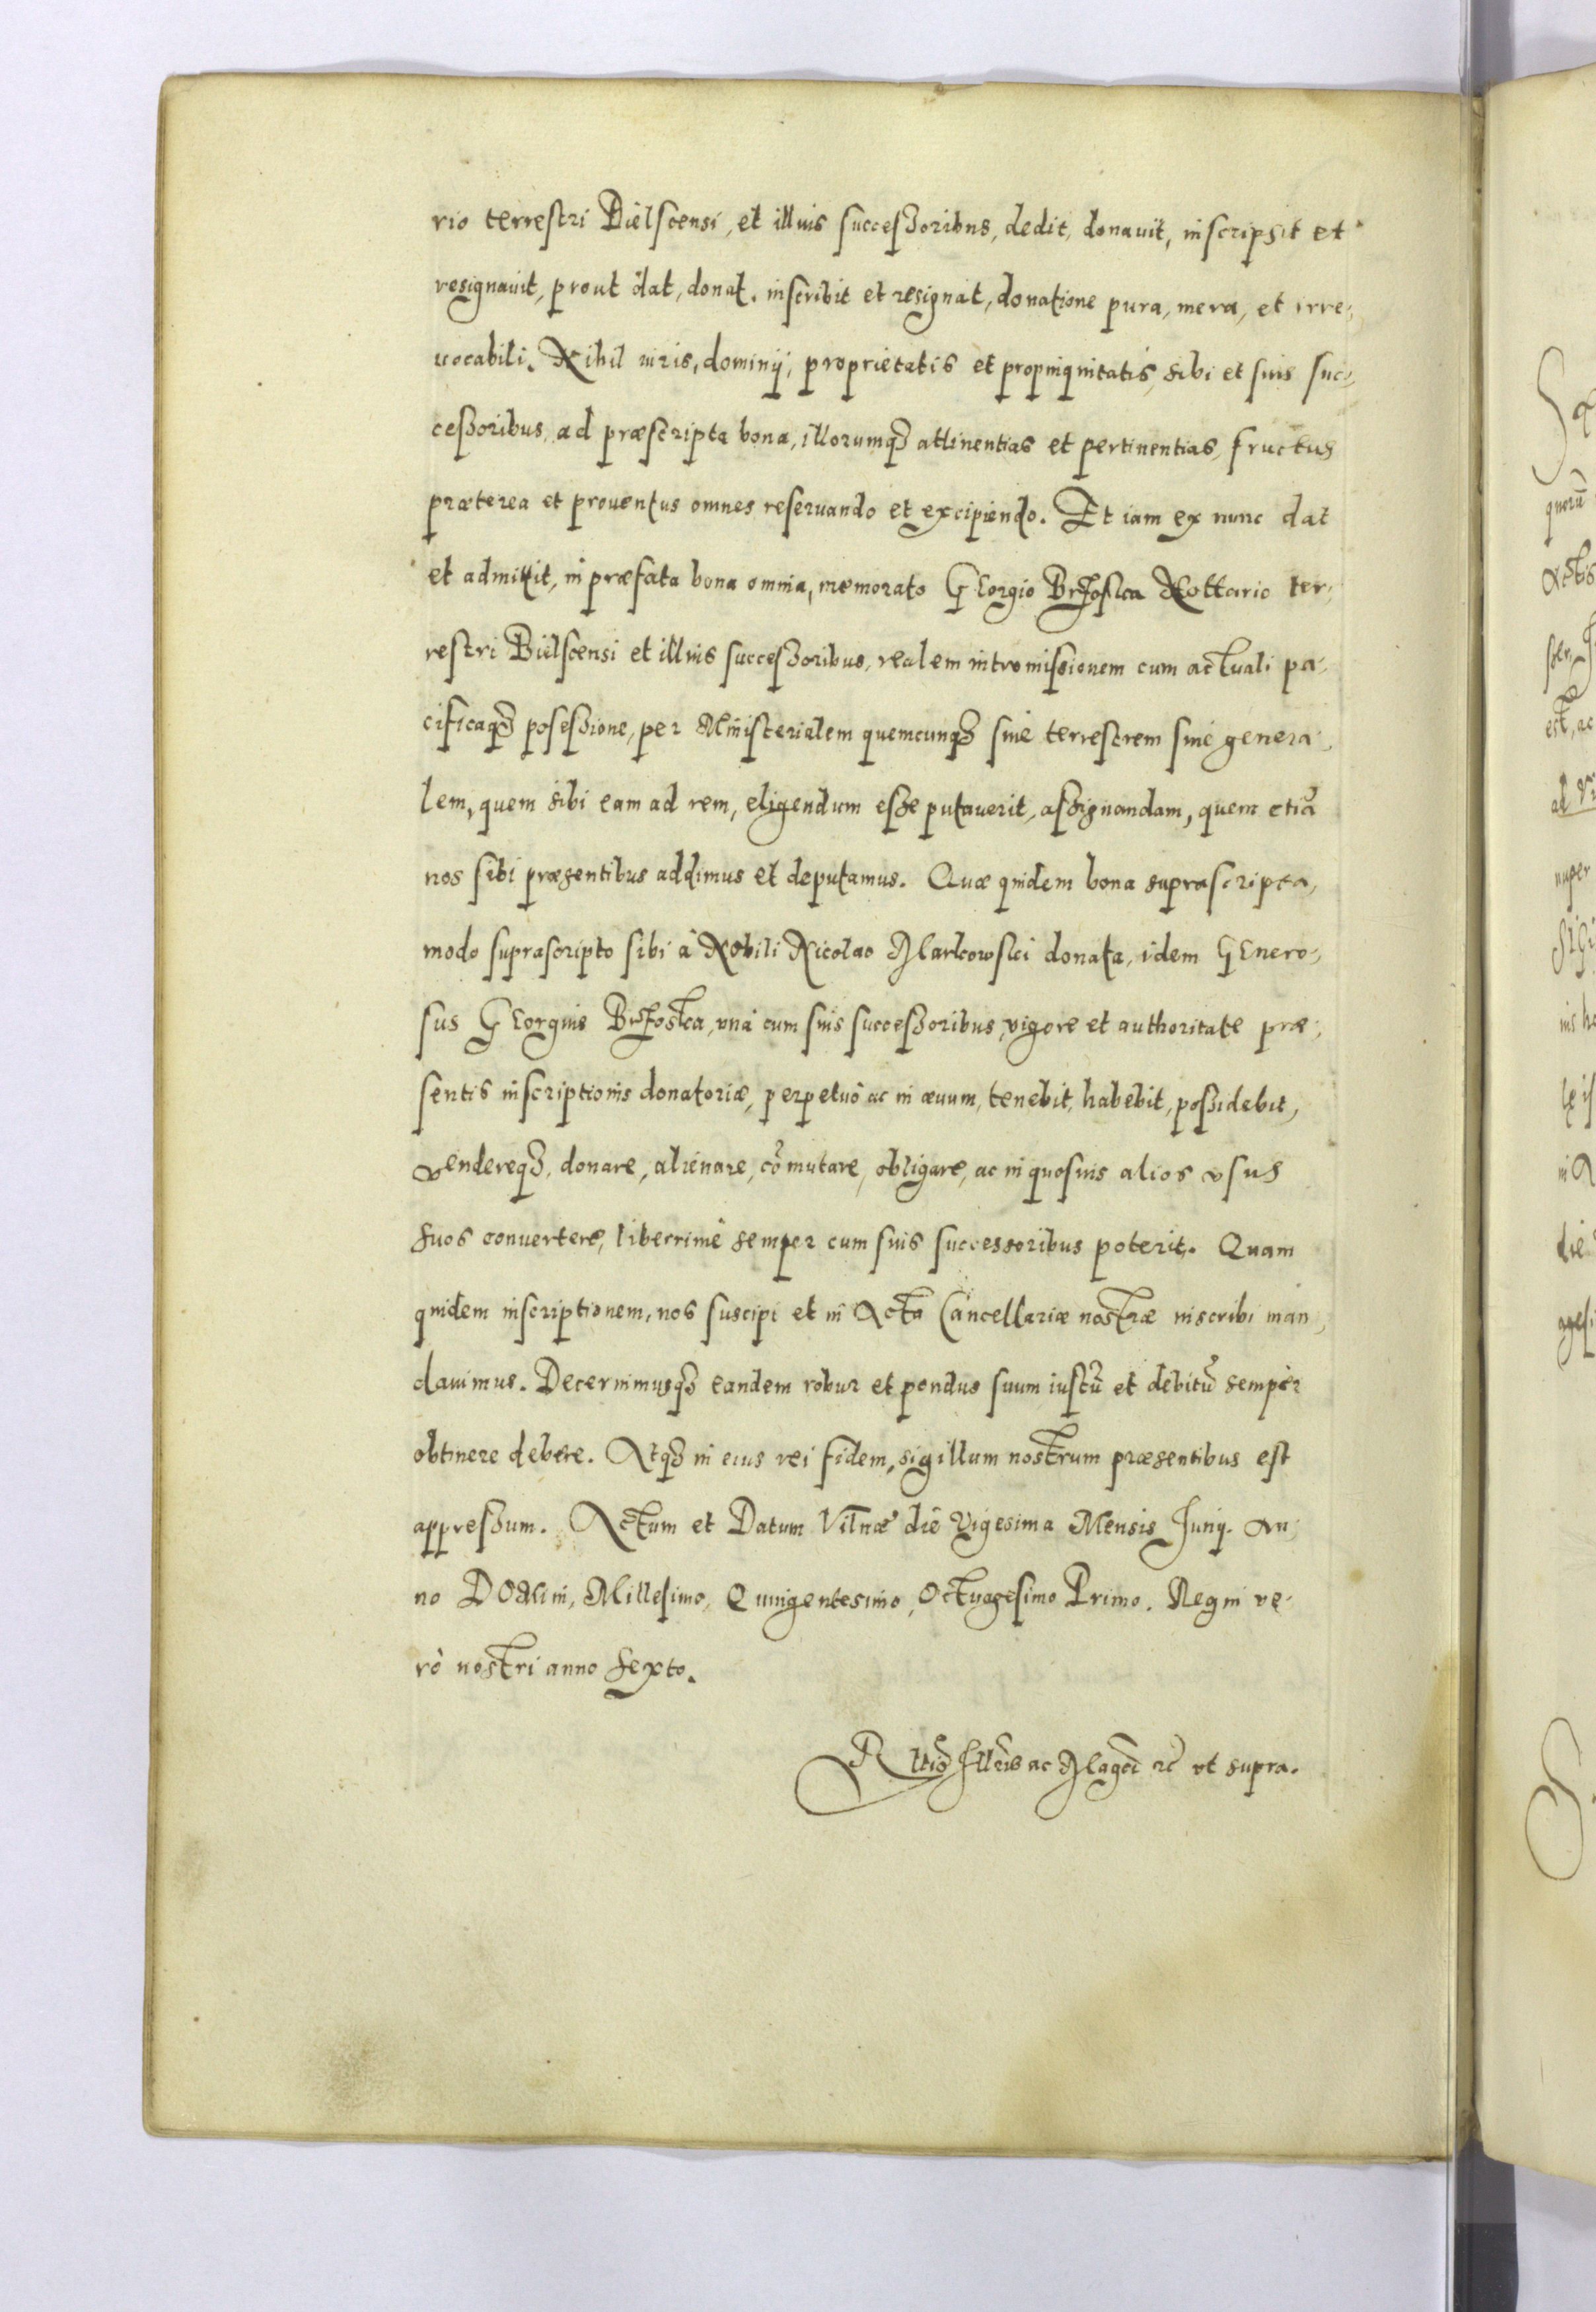 rio terrestri Bielscensi, et illius successoribus, dedit, donauit, inscripsit et
resignauit, prout dat, donat, inscribit et resignat, donatione pura, mera, et irre,
uocabili. Nihil iuris, dominij, proprietatis et propinquitatis, sibi et suis suc,
cessoribus, ad præscripta bona, illorumqȝ attinentias et pertinentias, fructus
præterea et prouentus omnes reseruando et excipiendo. Et iam ex nunc dat
et admittit, in præfata bona omnia, memorato GEorgio Brzoska Nottario ter,
restri Bielscensi et illius successoribus, realem intromissionem cum actuali pa,
cificaqȝ posessione, per Ministerialem quemcunqȝ siue terrestrem siue genera,
lem, quem sibi eam ad rem, eligendum esse putauerit, assignandam, quem etiā
nos sibi præsentibus addimus et deputamus. Quæ quidem bona suprascripta,
modo suprascripto sibi à Nobili Nicolao Markowski donata, idem GEnero,
sus GEorgius Brzoska, unà cum suis successoribus, vigore et authoritate præ,
sentis inscriptionis donatoriæ, perpetuò ac in æuum, tenebit, habebit, possidebit,
vendereqȝ, donare, alienare, cōmutare, obligare, ac in quosuis alios vsus
suos conuertere, liberrimè semper cum suis successoribus poterit. Quam
quidem inscriptionem, nos suscipi et in Acta Cancellariæ nostræ inscribi man,
dauimus. Decernimusqȝ eandem robur et pondus suum iustū et debitū semper
obtinere debere. Atqȝ in eius rei fidem, sigillum nostrum præsentibus est
appressum. Actum et Datum Vilnæ die Vigesima Mensis Junij. An,
no DOMini, Millesimo, Quingentesimo, Octuagesimo Primo. Regni ve,
rò nostri anno Sexto.
ac ut supra.